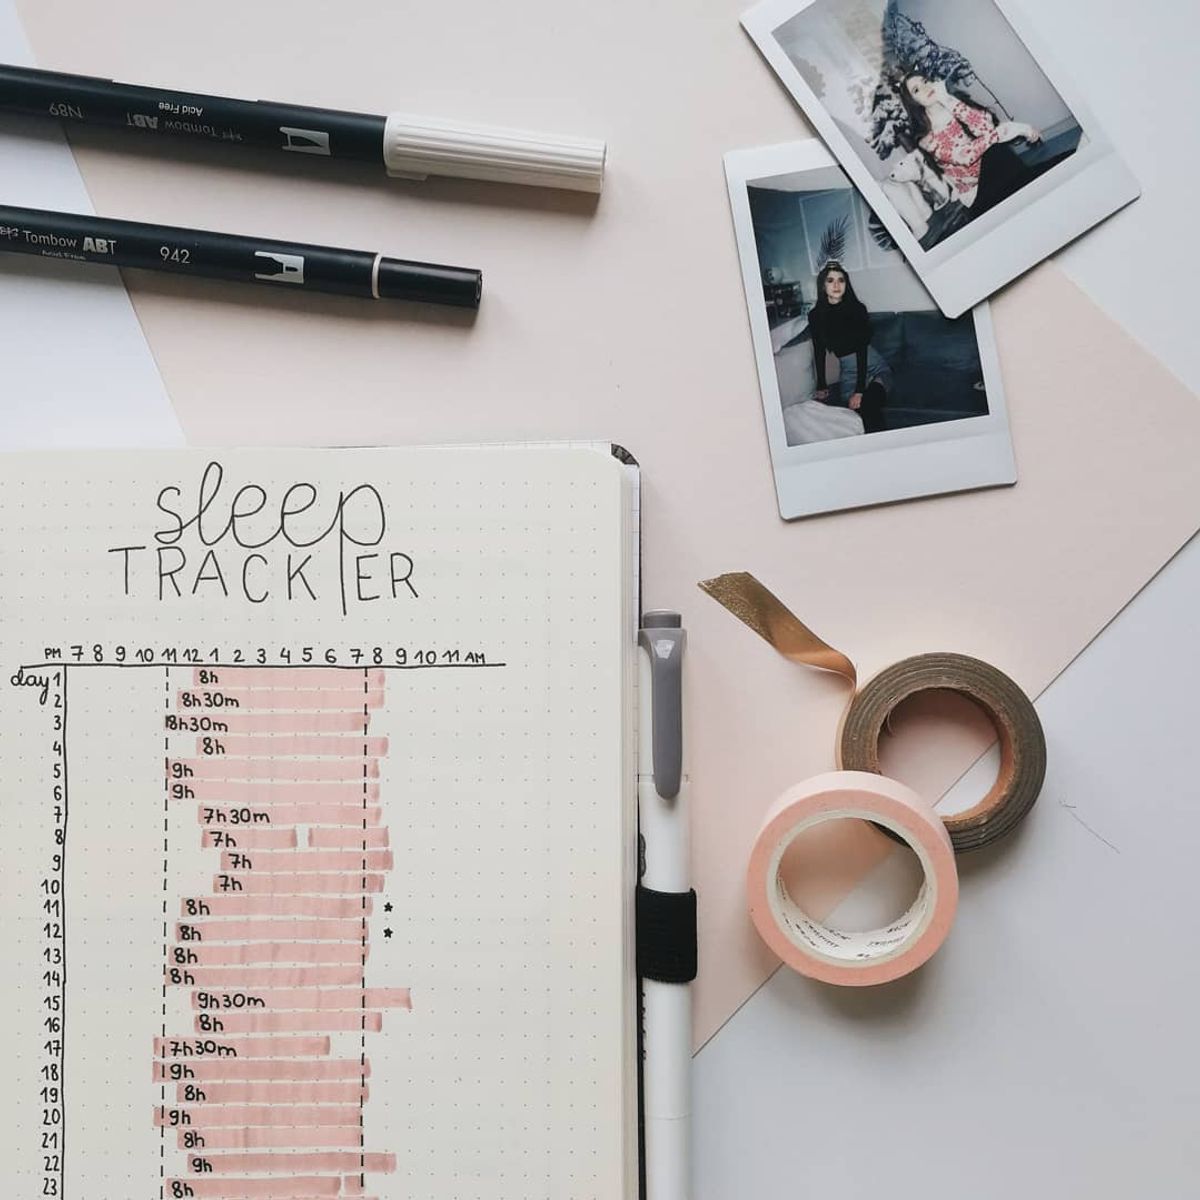 N89
Tombow ABT
Acid Free
Tombow ABT 942
Acid Free
sleep
TRACKER
PM 7 8 9 10 11 12 1 2 3 4 5 6 7 8 9 10 11 AM
day 1 8h
2 8h30m
3 8h30m
4 8h
5 9h
6 9h
7 7h30m
8 7h
9 7h
10 7h
11 8h *
12 8h *
13 8h
14 8h
15 9h30m
16 8h
17 7h30m
18 9h
19 8h
20 9h
21 8h
22 9h
23 8h